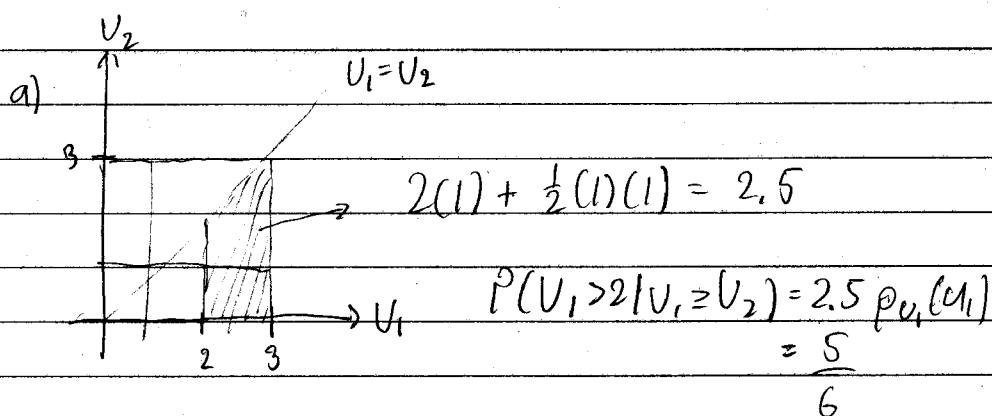 U₂
a)
U₁=U₂
3
2(1) + ½(1)(1) = 2.5
P(U₁>2|U₁≥U₂) = 2.5 p_{U₁}(u₁)
U₁
= 5/6
2 3